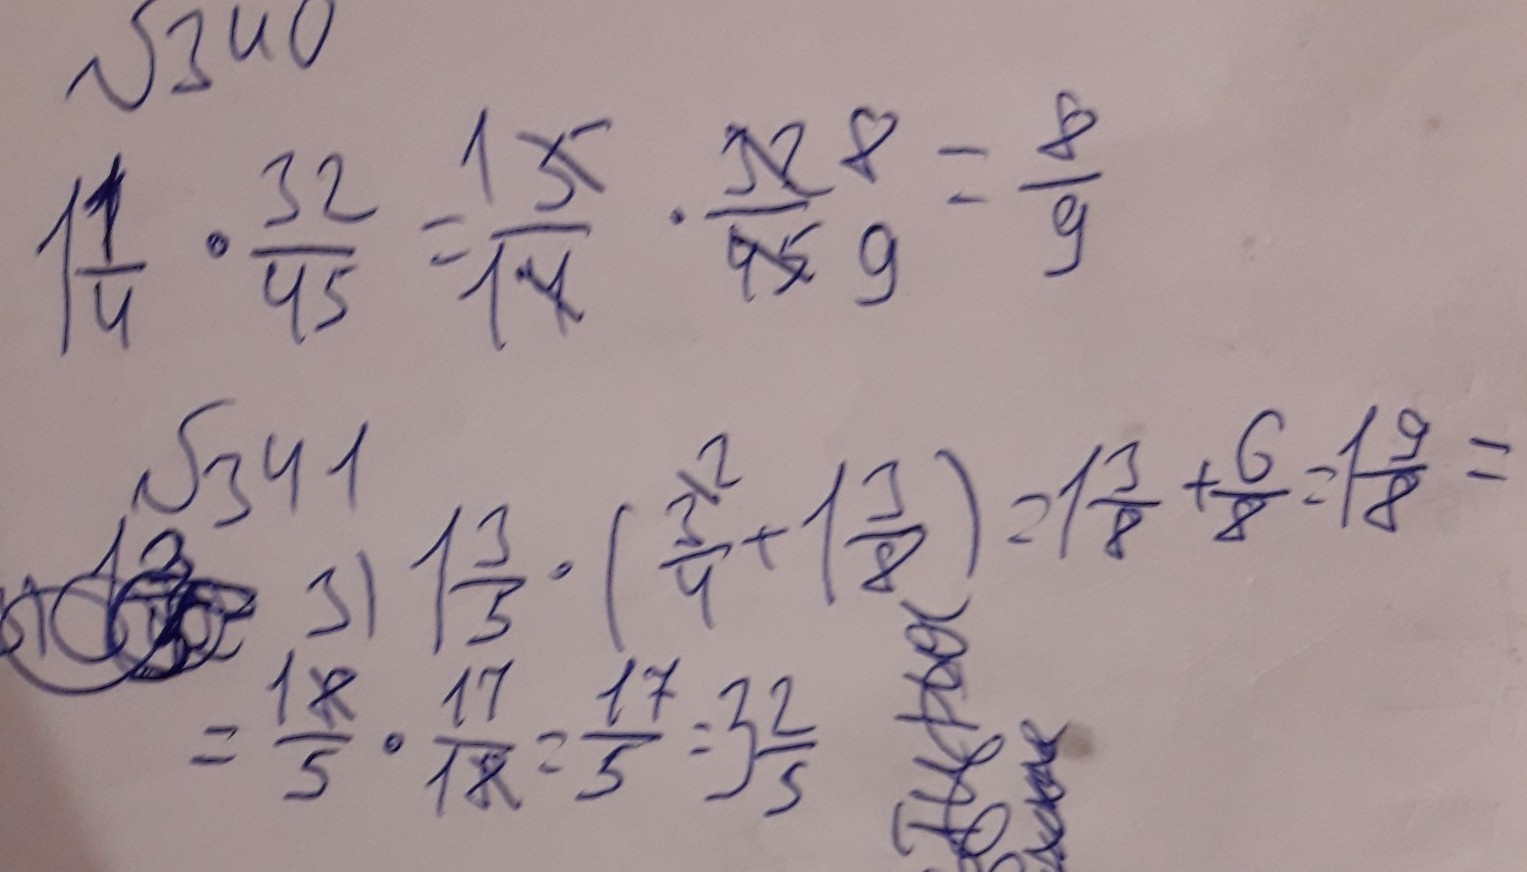 №340
1 1/4 · 32/45 = 5/4 · 32/45 = 8/9
№341
3) 1 3/5 · (3/4 + 1 3/8) = 1 3/8 + 6/8 = 1 9/8 =
= 8/5 · 17/8 = 17/5 = 3 2/5